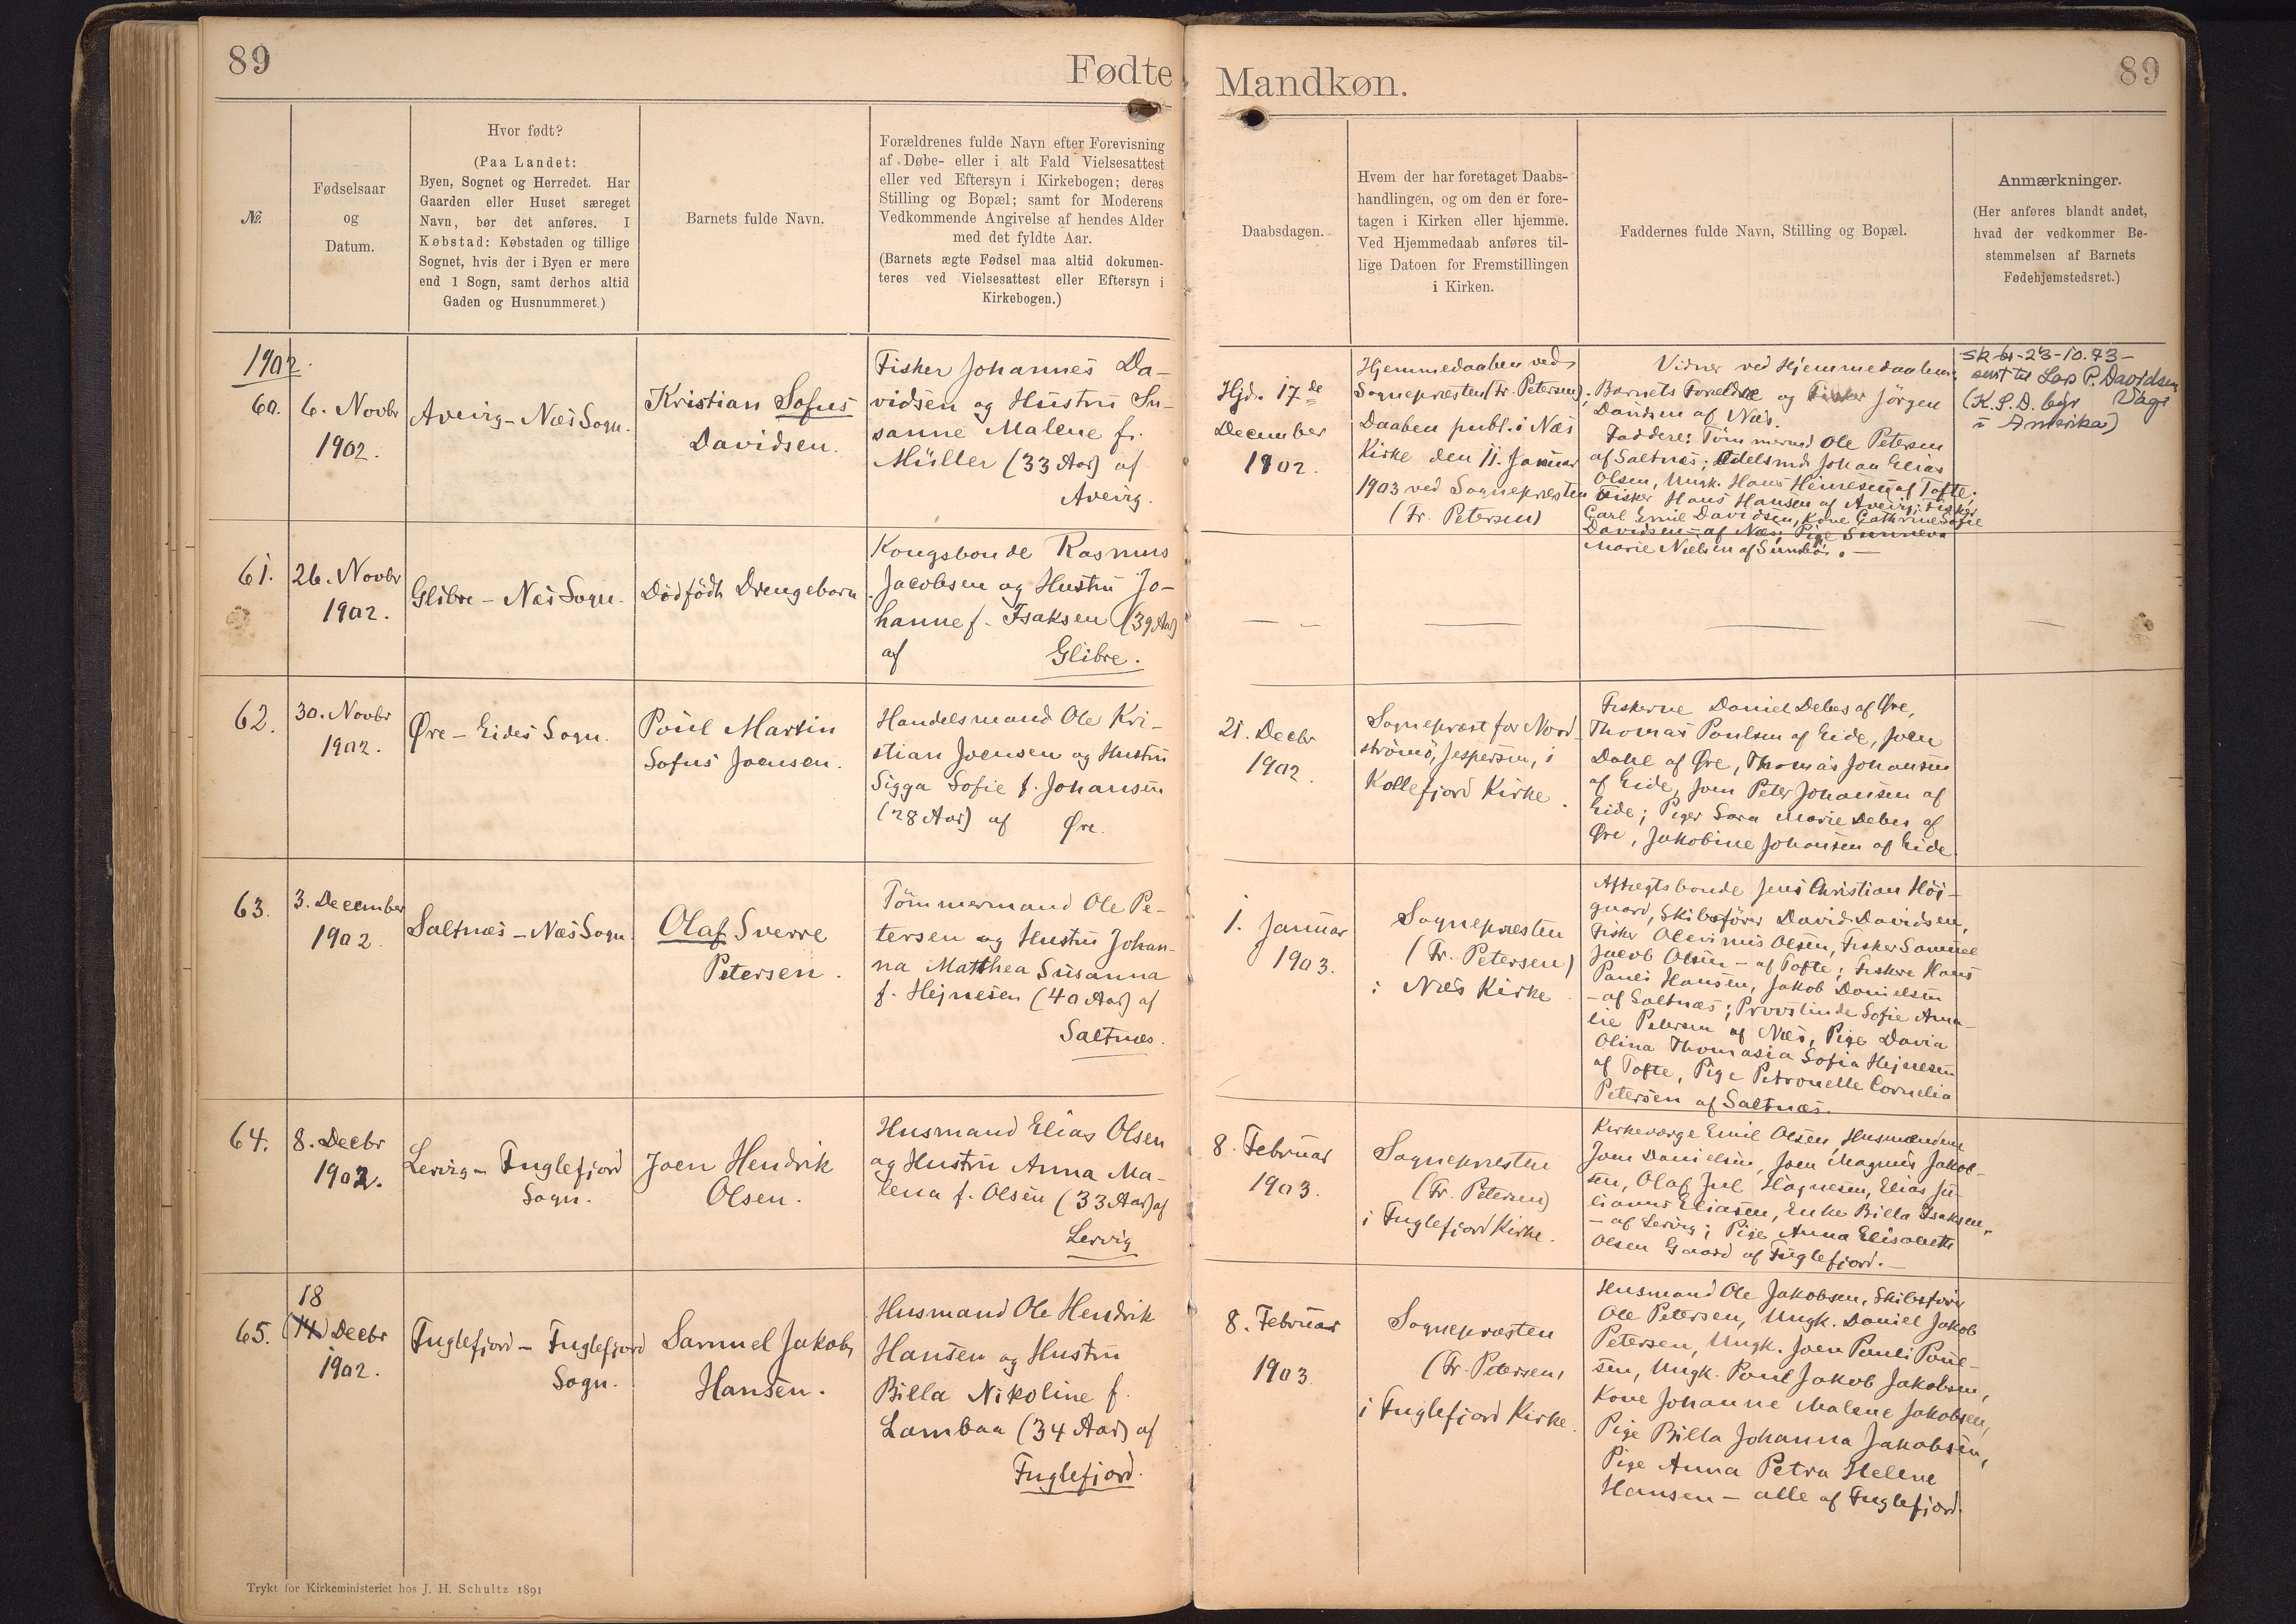 89
Fødte
Mandkøn.
89
№
Fødselsaar
og
Datum.
Hvor født?
(Paa Landet:
Byen, Sognet og Herredet. Har
Gaarden eller Huset særeget
Navn, bør det anføres. I
Købstad: Købstaden og tillige
Sognet, hvis der i Byen er mere
end 1 Sogn, samt derhos altid
Gaden og Husnummeret.)
Barnets fulde Navn.
Forældrenes fulde Navn efter Forevisning
af Døbe- eller i alt Fald Vielsesattest
eller ved Eftersyn i Kirkebogen; deres
Stilling og Bopæl; samt for Moderens
Vedkommende Angivelse af hendes Alder
med det fyldte Aar.
(Barnets ægte Fødsel maa altid dokumen-
teres ved Vielsesattest eller Eftersyn i
Kirkebogen.)
Daabsdagen.
Hvem der har foretaget Daabs-
handlingen, og om den er fore-
tagen i Kirken eller hjemme.
Ved Hjemmedaab anføres til-
lige Datoen for Fremstillingen
i Kirken.
Faddernes fulde Navn, Stilling og Bopæl.
Anmærkninger.
(Her anføres blandt andet,
hvad der vedkommer Be-
stemmelsen af Barnets
Fødehjemstedsret.)
1902.
60.
6. Novbr
1902.
Avevig - Næs Sogn.
Kristian Sofus
Davidsen.
Fisker Johannes Da-
vidsen og Hustru Su-
sanne Malene f.
Müller (33 Aar) af
Avevig.
Hjd. 17de
December
1902.
Hjemmedaaben ved
Sognepræsten (Fr. Petersen).
Daaben publ. i Næs
Kirke den 11. Januar
1903 ved Sognepræsten
(Fr. Petersen)
Vidner ved Hjemmedaaben:
Barnets Forældre og Fisker Jörgen
Davidsen af Næs.
Faddere: Tömmermd Ole Petersen
af Saltnæs; Odelsmd. Johan Elias
Olsen, Ungk. Hans Heinesen af Tofte;
Fisker Hans Hansen af Avevig; Fisker
Carl Emil Davidsen, Kone Cathrine Sofie
Davidsen - af Næs; Pige Sunneva
Marie Nielsen af Sumbö. -
sk br - 23-10.73 -
sent til Lars P. Davidsen
Vagi
(K. S. D. býr
i Amerika)
61.
26. Novbr
1902.
Glibre - Næs Sogn.
Dödfödt Drengebarn.
Kongsbonde Rasmus
Jacobsen og Hustru Jo-
hanne f. Isaksen (39 Aar)
af Glibre.
62.
30. Novbr
1902.
Øre - Eides Sogn.
Poul Martin
Sofus Joensen.
Handelsmand Ole Kri-
stian Joensen og Hustru
Sigga Sofie f. Johansen
(28 Aar) af Øre.
21. Decbr
1902.
Sognepræst for Nord-
strömö, Jespersen, i
Kollefjord Kirke.
Fiskerne Daniel Debes af Øre,
Thomas Poulsen af Eide, Joen
Dahl af Øre, Thomas Johansen
af Eide, Joen Peter Johansen af
Eide; Piger Sara Marie Debes af
Øre, Jakobine Johansen af Eide.
63.
3. December
1902
Saltnæs - Næs Sogn.
Olaf Sverre
Petersen.
Tömmermand Ole Pe-
tersen og Hustru Johan-
na Matthea Susanna
f. Hejnesen (40 Aar) af
Saltnæs.
1. Januar
1903.
Sognepræsten
(Fr. Petersen)
i Næs Kirke.
Aftægtsbonde Jens Christian Höj-
gaard, Skibsförer David Davidsen,
Fisker Olevinus Olsen, Fisker Samuel
Jacob Olsen - af Tofte; Fiskere Hans
Pauli Hansen, Jakob Danielsen
- af Saltnæs; Provstinde Sofie Ama-
lie Petersen af Næs, Pige Davia
Olina Thomasia Sofia Hejnesen
af Tofte, Pige Petronelle Cornelia
Petersen af Saltnæs.
64.
8. Decbr
1902.
Lervig - Fuglefjord
Sogn.
Joen Hendrik
Olsen.
Husmand Elias Olsen
og Hustru Anna Ma-
lena f. Olsen (33 Aar) af
Lervig
8. Februar
1903.
Sognepræsten
(Fr. Petersen)
i Fuglefjord Kirke.
Kirkeværge Emil Olsen, Husmændene
Joen Danielsen, Joen Magnus Jakob-
sen, Olaf Juel Högnesen, Elias Ju-
lianus Eliasen, Enke Billa Isaksen,
- af Lervig; Pige Anna Elisabeth
Olsen Gaard af Fuglefjord. -
65.
18
(14) Decbr
1902.
Fuglefjord - Fuglefjord
Sogn.
Samuel Jakob
Hansen.
Husmand Ole Hendrik
Hansen og Hustru
Billa Nikoline f.
Lambaa (34 Aar) af
Fuglefjord.
8. Februar
1903.
Sognepræsten
(Fr. Petersen)
i Fuglefjord Kirke.
Husmand Ole Jakobsen, Skibsförer
Ole Petersen, Ungk. Daniel Jakob
Petersen, Ungk. Joen Pauli Poul-
sen, Ungk. Poul Jakob Jakobsen,
Kone Johanne Malene Jakobsen,
Pige Billa Johanna Jakobsen,
Pige Anna Petra Helene
Hansen - alle af Fuglefjord.
Trykt for Kirkeministeriet hos J. H. Schultz 1891